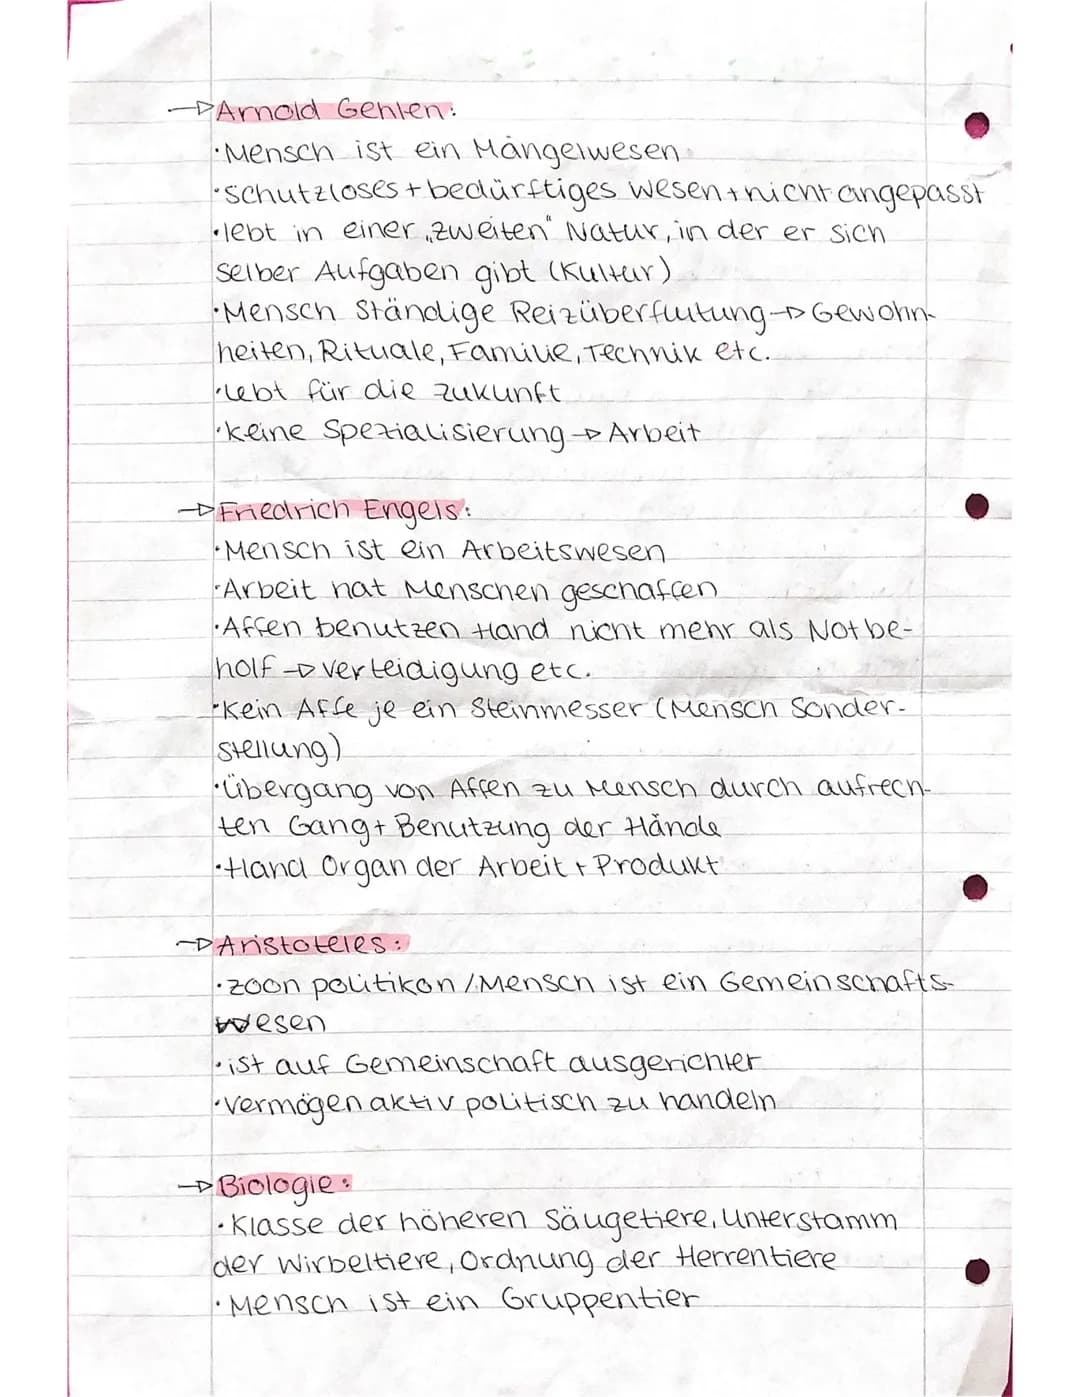 →Arnold Gehlen:
·Mensch ist ein Mängelwesen
·schutzloses + bedürftiges Wesen + nicht angepasst
·lebt in einer „zweiten" Natur, in der er sich
selber Aufgaben gibt (Kultur)
·Mensch Ständige Reizüberflutung → Gewohn-
heiten, Rituale, Familie, Technik etc.
·lebt für die Zukunft
·keine Spezialisierung → Arbeit
→Friedrich Engels:
·Mensch ist ein Arbeitswesen
·Arbeit hat Menschen geschaffen
·Affen benutzen Hand nicht mehr als Notbe-
holf → verteidigung etc.
·Kein Affe je ein Steinmesser (Mensch Sonder-
stellung)
·Übergang von Affen zu Mensch durch aufrech-
ten Gang + Benutzung der Hände
·Hand Organ der Arbeit + Produkt
→Aristoteles:
·zoon politikon / Mensch ist ein Gemeinschafts-
wesen
·ist auf Gemeinschaft ausgerichtet
·vermögen aktiv politisch zu handeln
→Biologie:
·Klasse der höheren Säugetiere, Unterstamm
der Wirbeltiere, Ordnung der Herrentiere
·Mensch ist ein Gruppentier